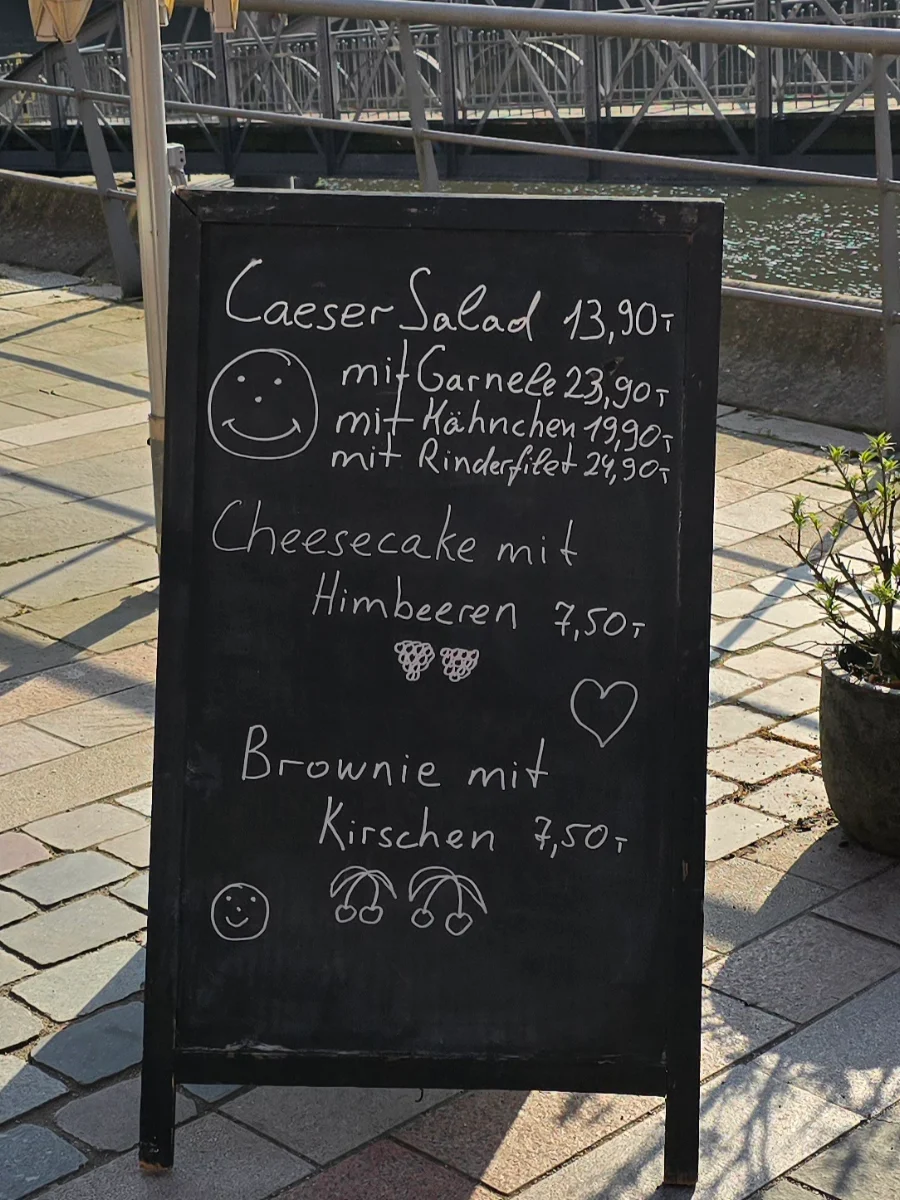 Caeser Salad 13,90-
mit Garnele 23,90-
mit Hähnchen 19,90-
mit Rinderfilet 24,90-
Cheesecake mit
Himbeeren 7,50-
Brownie mit
Kirschen 7,50-